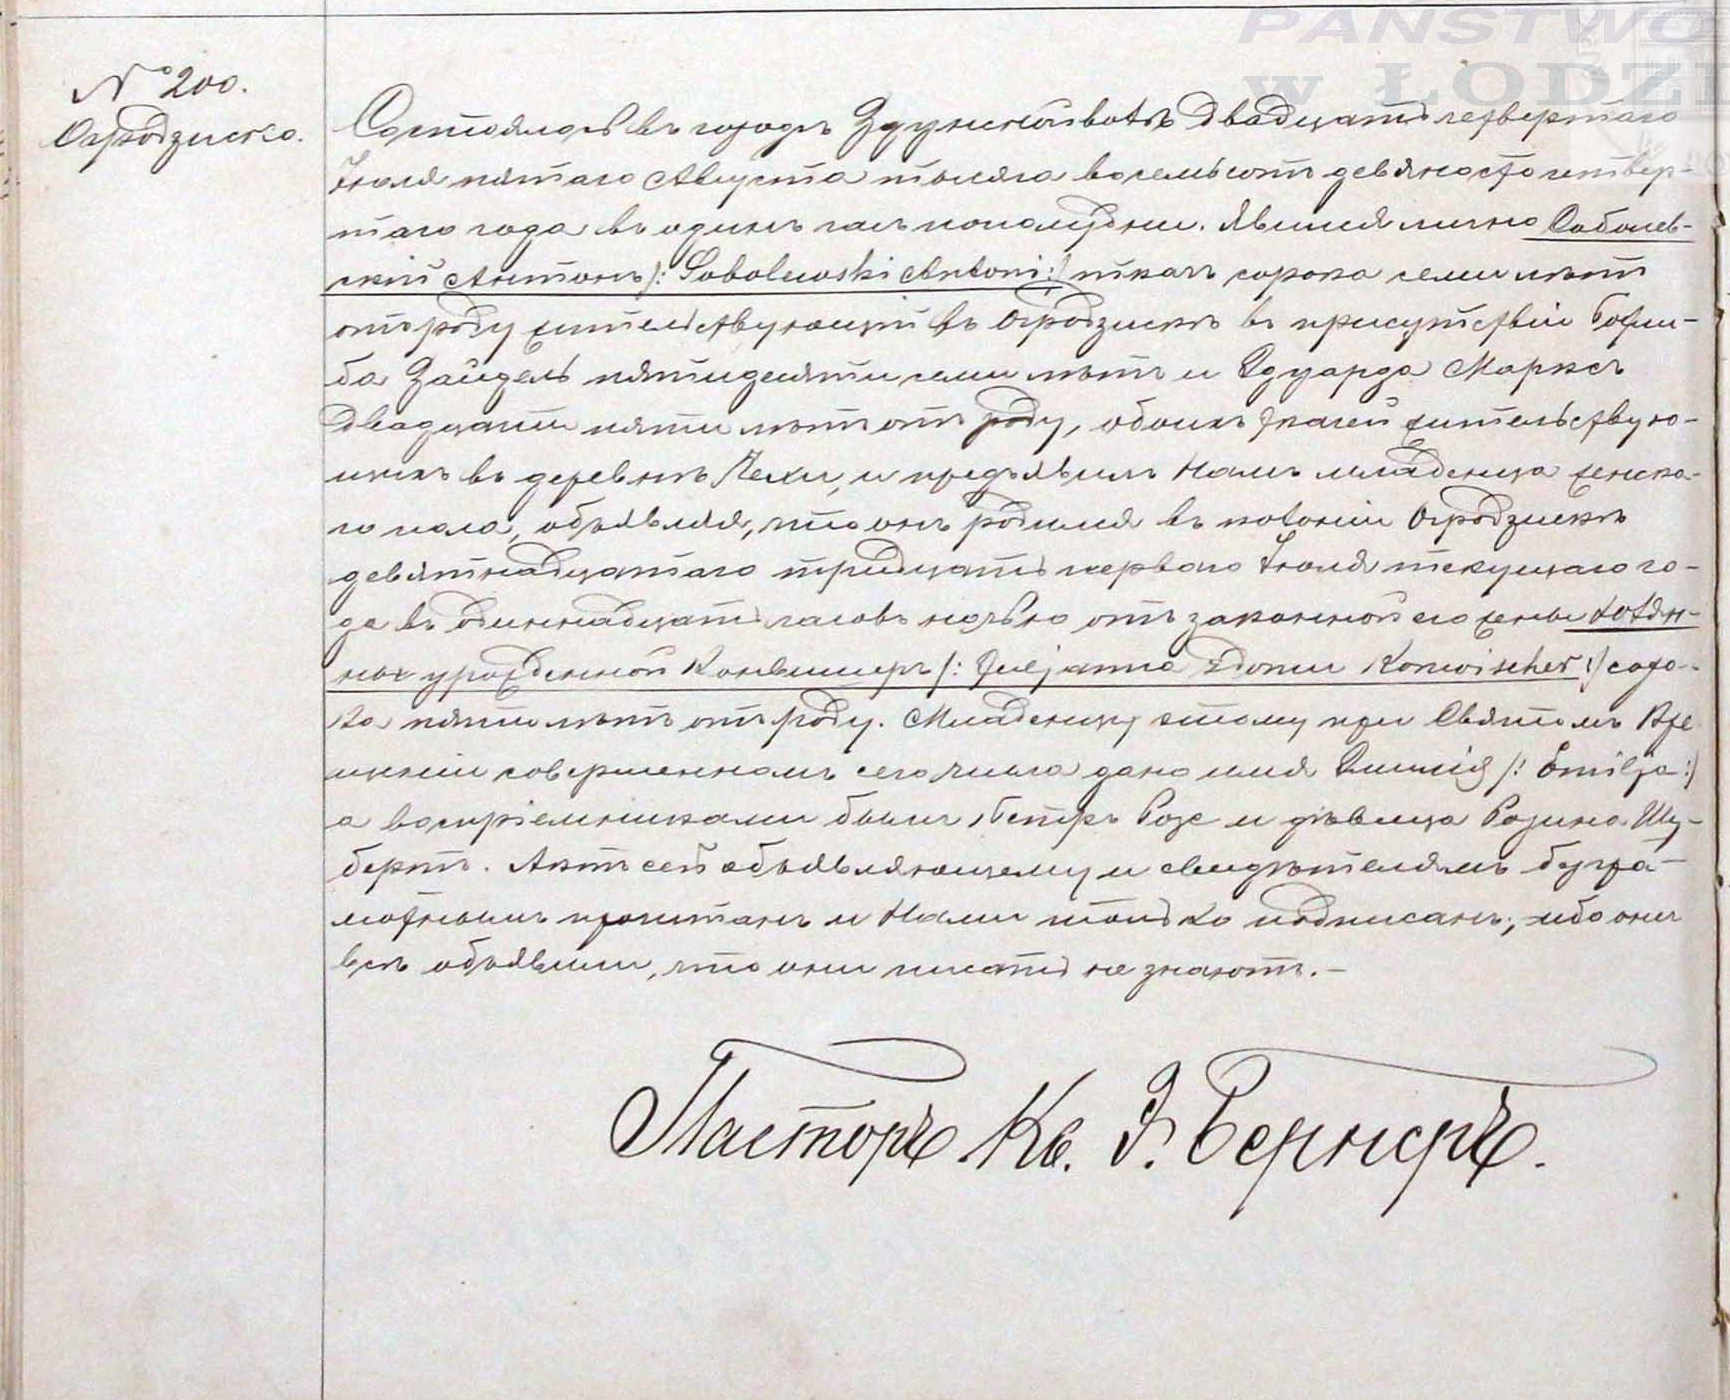 PAŃSTWO
W ŁODZI
№ 200.
Огродзиско.
Состоялось въ городѣ Здунской волѣ двадцать четвертаго
Іюля пятаго Августа тысяча восемьсотъ девяносто четвер-
таго года въ одинъ часъ пополудни. Явился лично Соболев-
скій Антонъ /: Sobolewski Antoni :/ ткачъ сорока семи лѣтъ
отъ роду жительствующій въ Огродзискѣ въ присутствіи Готли-
ба Зайдель пятидесяти семи лѣтъ и Эдуарда Марксъ
двадцати пяти лѣтъ отъ роду, обоихъ ткачей жительствую-
щихъ въ деревнѣ Чехи, и предъявилъ Намъ младенца женска-
го пола, объявляя, что онъ родился въ колоніи Огродзискѣ
девятнадцатаго тридцать перваго Іюля текущаго го-
да въ одиннадцать часовъ ночью отъ законной его жены
урожденной Конвишеръ /: Juljanna Konwischer :/ соро-
ка пяти лѣтъ отъ роду. Младенцу этому при Святомъ Кре
щеніи совершенномъ сего числа дано имя Эмилія /: Emilja :/
а воспріемниками были Петръ Розе и дѣвица Розина Шу-
бертъ. Актъ сей объявляющему и свидѣтелямъ безгра-
мотнымъ прочитанъ и Нами только подписанъ, ибо они
всѣ объявили, что они писать не знаютъ. —
Пасторъ Кв. Э. Бернеръ.